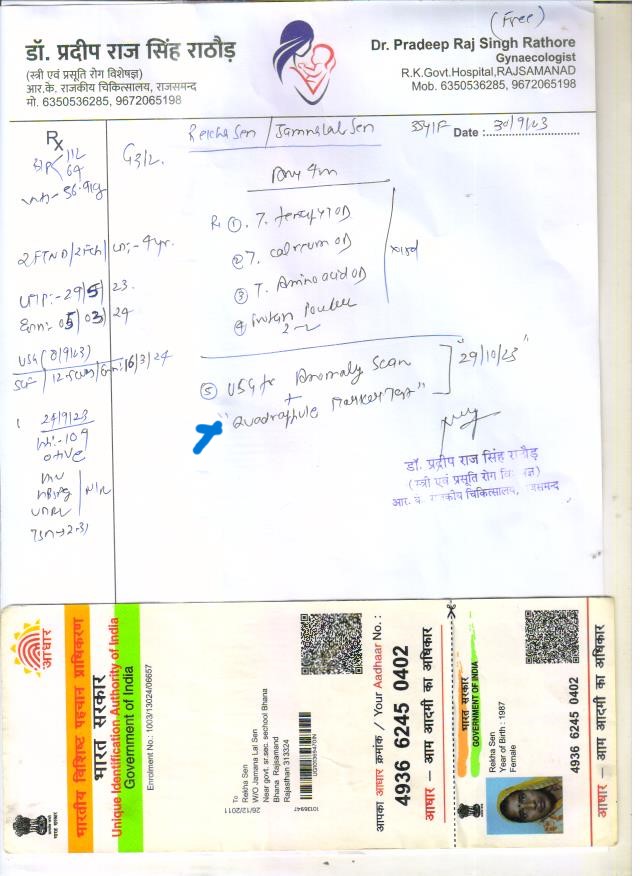 (Free)
डॉ. प्रदीप राज सिंह राठौड़
(स्त्री एवं प्रसूति रोग विशेषज्ञ)
आर.के. राजकीय चिकित्सालय, राजसमंद
मो. 6350536285, 9672065198
Dr. Pradeep Raj Singh Rathore
Gynaecologist
R.K.Govt.Hospital,RAJSAMANAD
Mob. 6350536285, 9672065198
Rekha Sen / Jamnalal Sen
35y/F Date : 30/9/23
Rx
BP 112
64
G3/2
2FTND/2FCh/LD:-4yr.
LMP:-29/5/23
05/03/24
USG (8/9/23)
16/3/24
24/9/23
① T. OD
② T. calcium OD
③ T. Amino acid OD
④ Protein Powder
⑤ USG for Anomaly Scan
+
"Quadruple Marker Test"
"29/10/23"
डॉ. प्रदीप राज सिंह राठौड़
(स्त्री एवं प्रसूति रोग विशेषज्ञ)
आर. के. राजकीय चिकित्सालय, राजसमन्द
आधार
भारतीय विशिष्ट पहचान प्राधिकरण
भारत सरकार
Unique Identification Authority of India
Government of India
भारत सरकार
Enrolment No.: 1003/13024/06657
26/12/2011
To
Rekha Sen
W/O Jamana Lal Sen
Near govt. sr.sec. sechool Bhana
Bhana Rajsamand
Rajasthan 313324
10136947
आपका आधार क्रमांक / Your Aadhaar No. :
4936 6245 0402
आधार – आम आदमी का अधिकार
भारत सरकार
GOVERNMENT OF INDIA
Rekha Sen
Year of Birth : 1987
Female
4936 6245 0402
आधार – आम आदमी का अधिकार